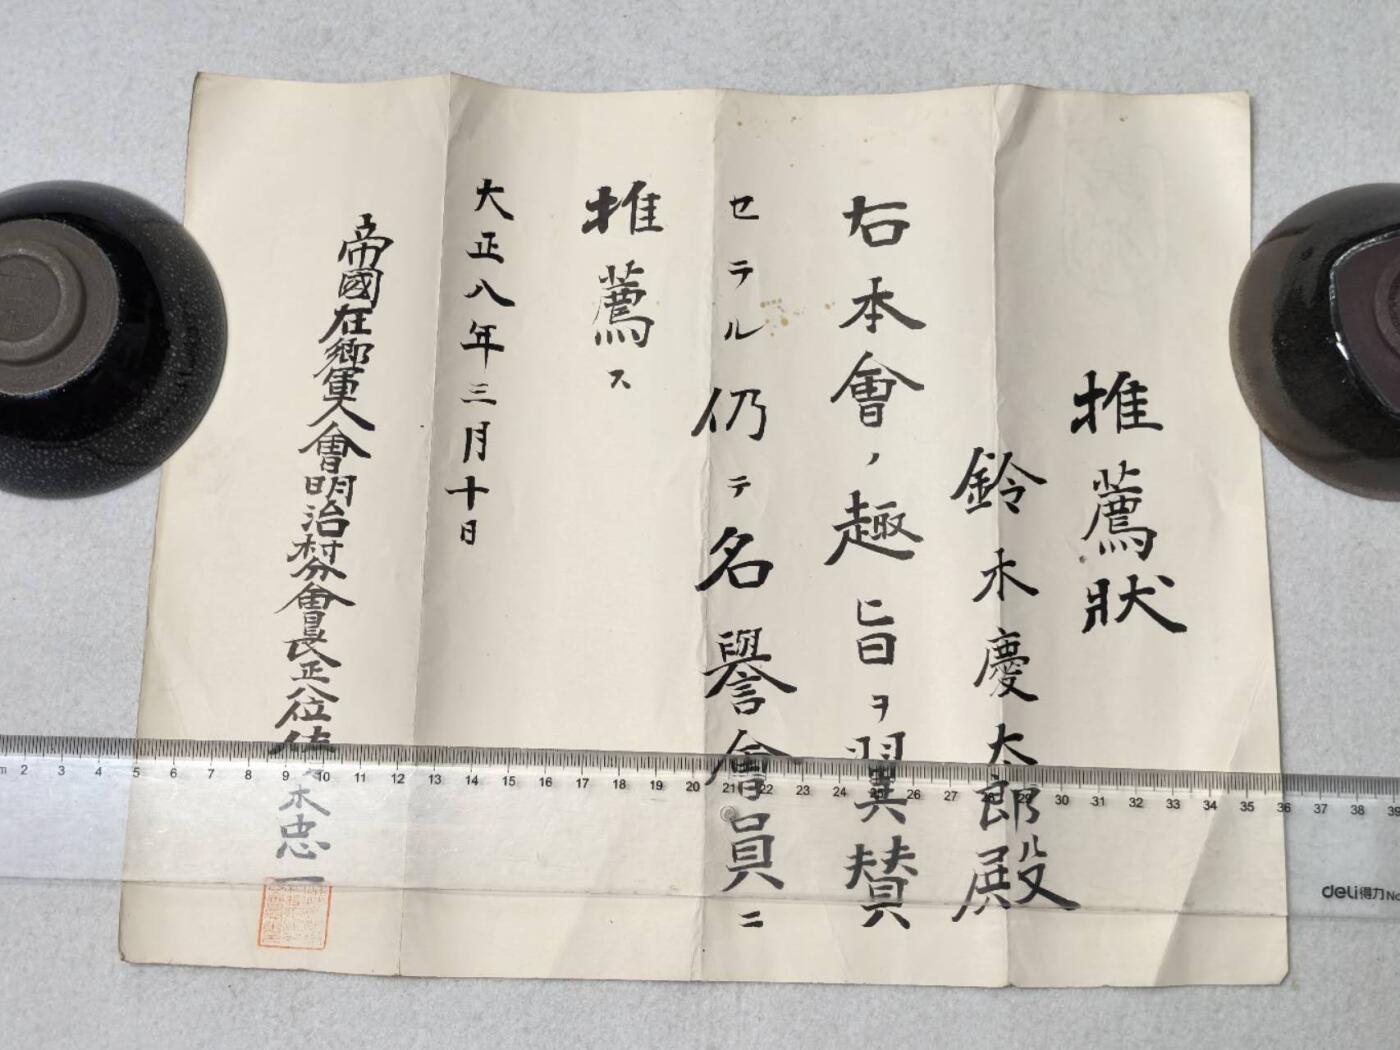 推薦状
鈴木慶太郎殿
右本會ノ趣旨ヲ翼賛
セラル仍テ名譽會員ニ
推薦ス
大正八年三月十日
帝國在郷軍人會明治村分會長正八位佐々木忠一
2 3 4 5 6 7 8 9 10 11 12 13 14 15 16 17 18 19 20 21 22 23 24 25 26 27 28 29 30 31 32 33 34 35 36 37 38 39
deli得力 No